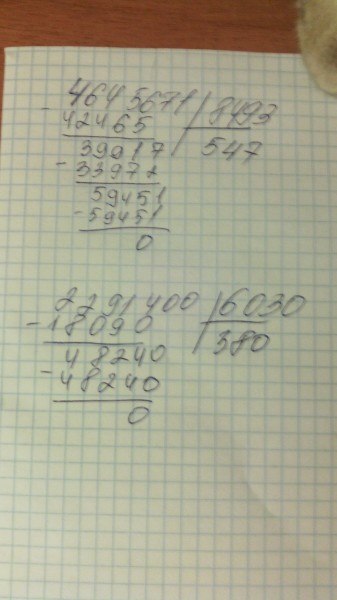 4645671 | 8493
- 42465 | 547
39917
- 33972
59451
- 59451
0
2291400 | 6030
- 18090 | 380
48240
- 48240
0